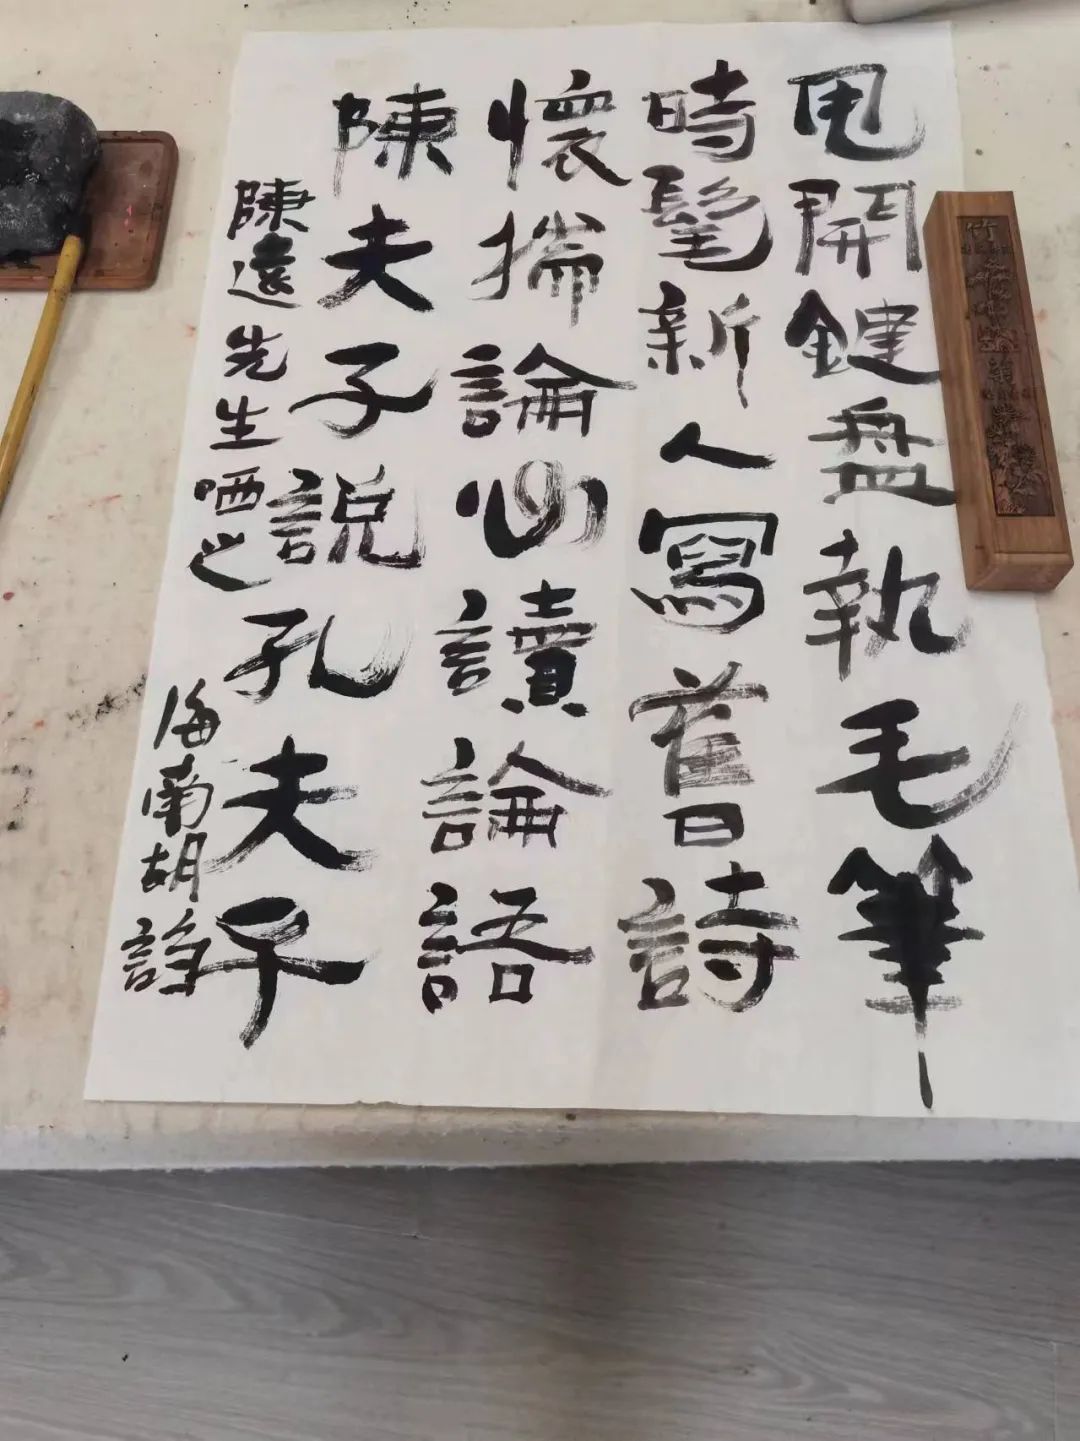 甩開鍵盤執毛筆
時髦新人寫舊詩
懷揣論心讀論語
陳夫子説孔夫子
陳遠先生哂之
海南胡謅